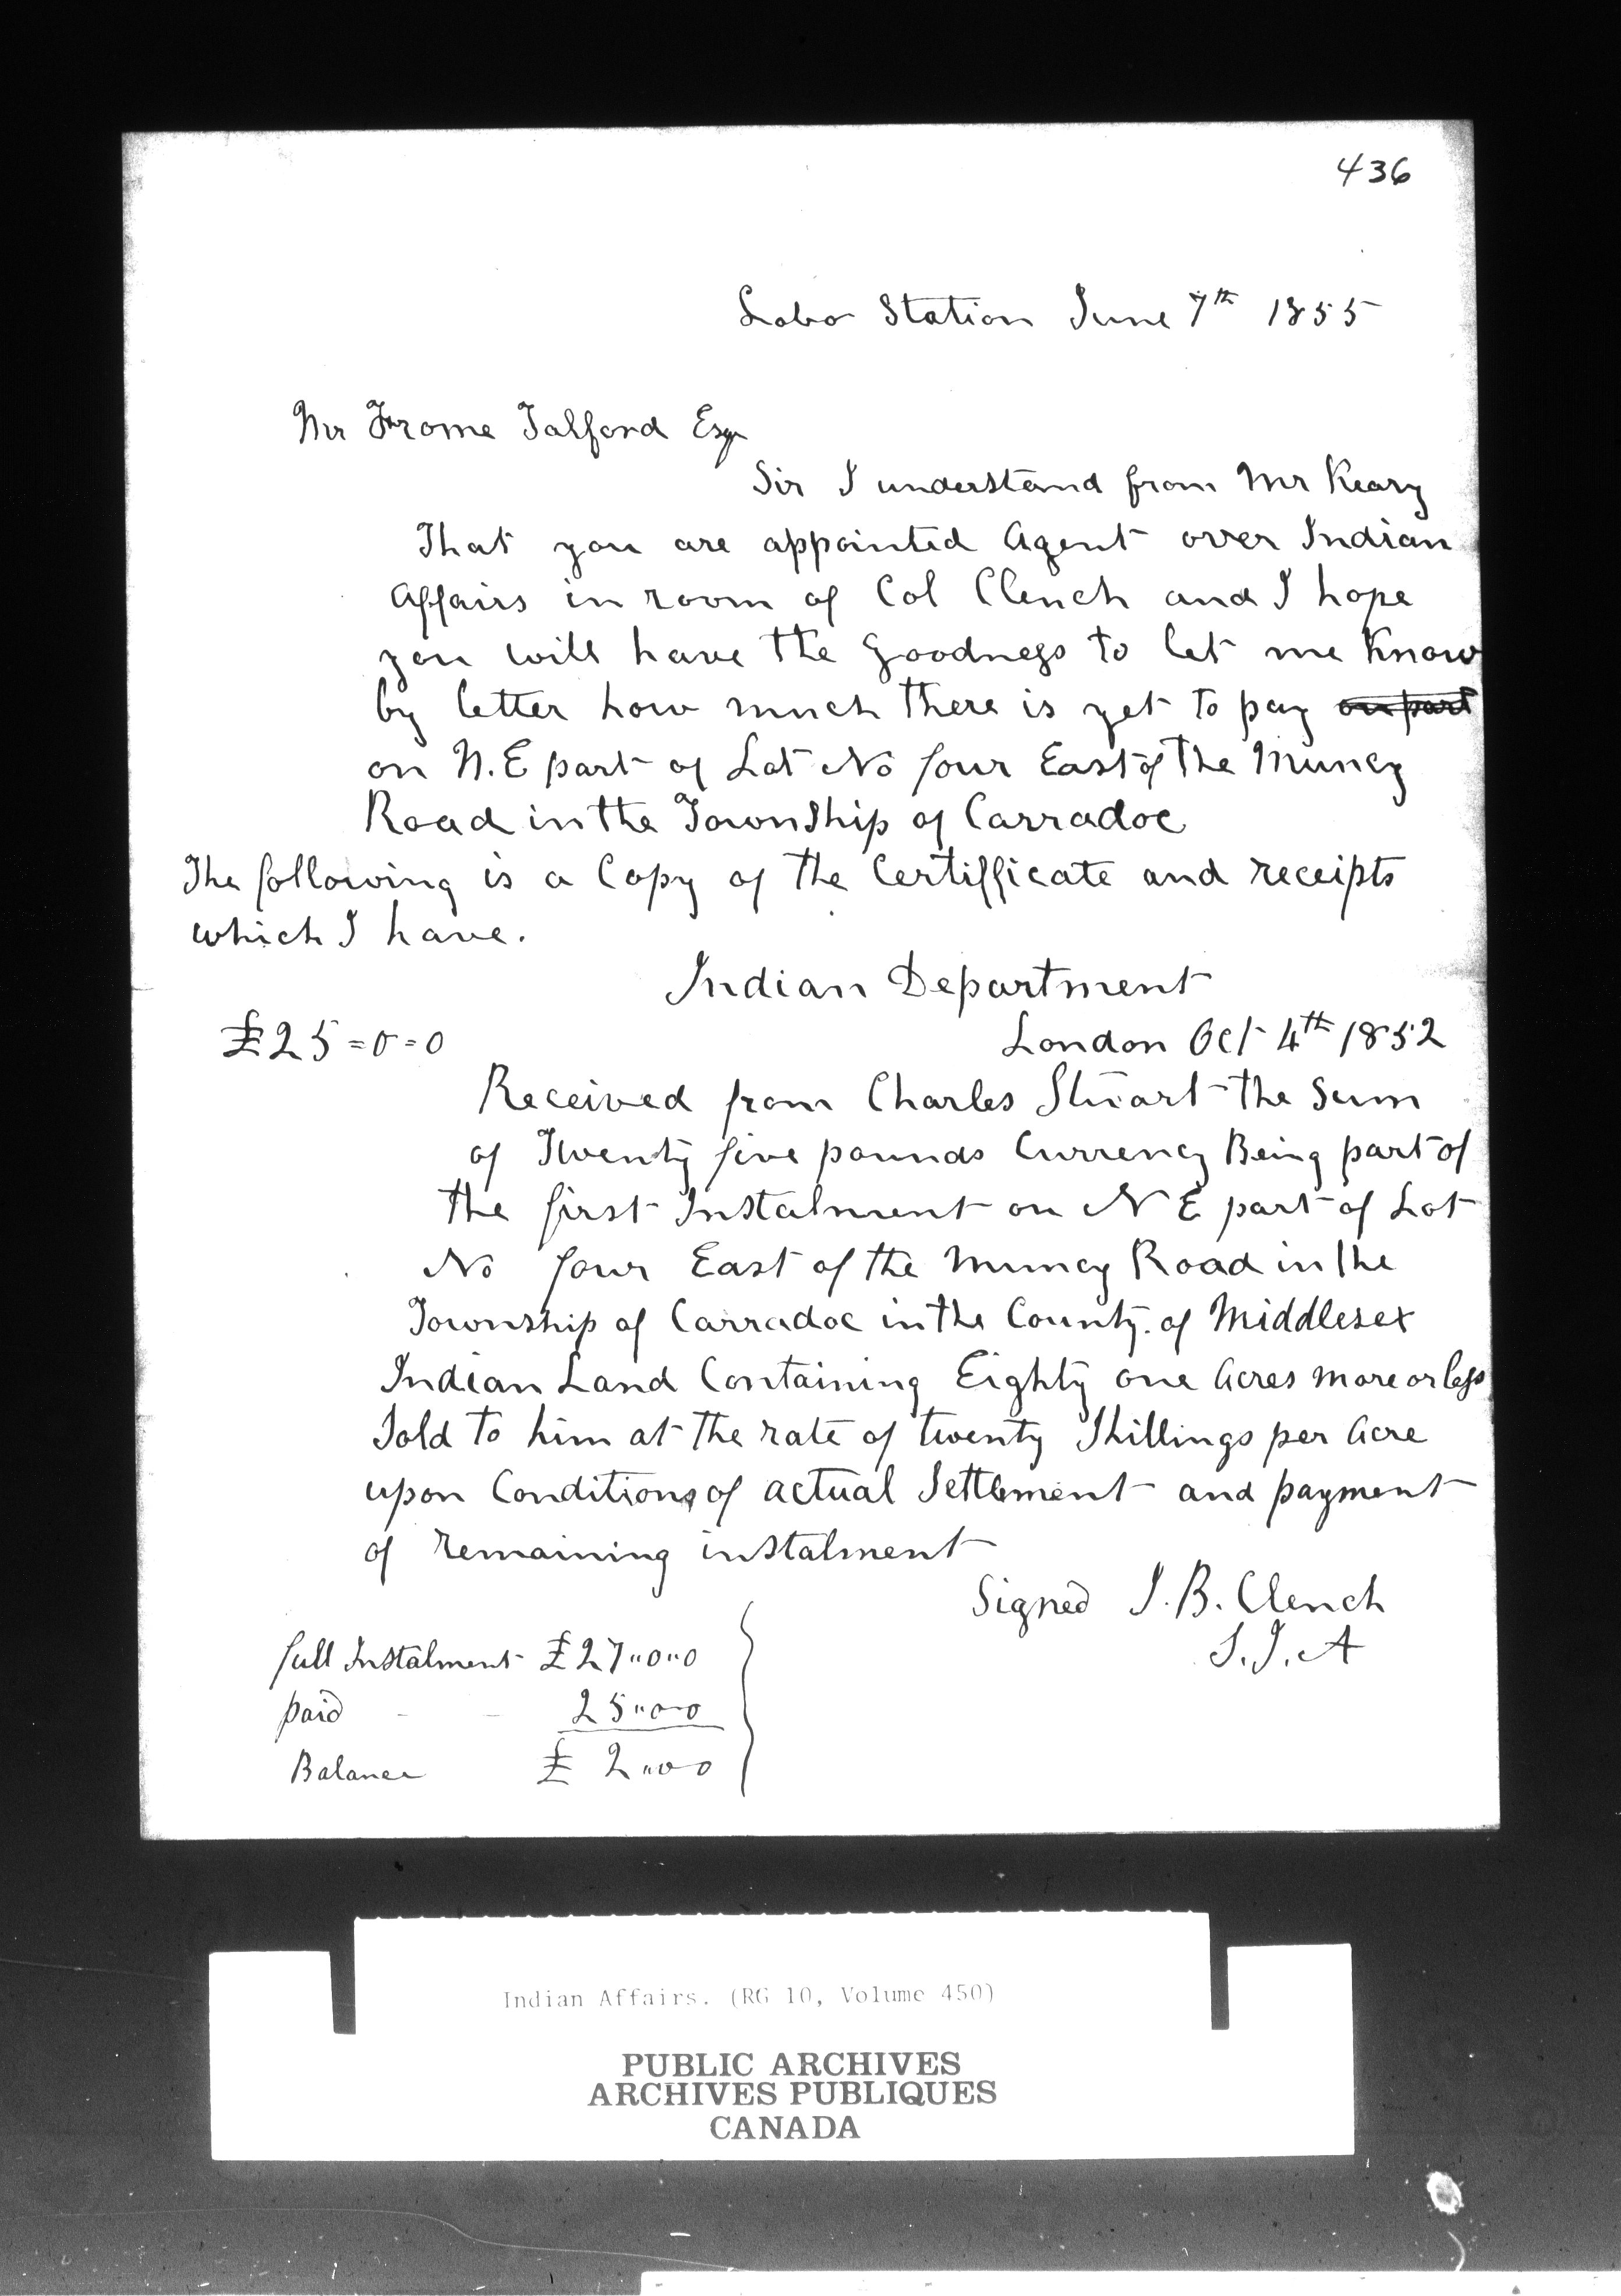 436
Lobo Station June 7th 1855
Mr Frome Talford Esqr
Sir I understand from Mr Keary
That you are appointed Agent over Indian
Affairs in room of Col Clench and I hope
you will have the goodness to let me know
by letter how much there is yet to pay on part
on N.E part of Lot No four East of the Muncy
Road in the Township of Carradoc
The following is a Copy of the Certifficate and receipts
which I have.
Indian Department
£25=0=0 London Oct 4th 1852
Received from Charles Stuart the Sum
of Twenty five pounds Currency Being part of
the first Instalment on N E part of Lot
No four East of the Muncy Road in the
Township of Carradoc in the County of Middlesex
Indian Land Containing Eighty one Acres more or less
Sold to him at the rate of twenty Shillings per Acre
upon Conditions of actual Settlement and payment
of remaining instalment
Signed J.B. Clench
S.I.A
full Instalment £27"0"0
paid - - 25"0-0
Balance £ 2"00
Indian Affairs. (RG 10, Volume 450)
PUBLIC ARCHIVES
ARCHIVES PUBLIQUES
CANADA